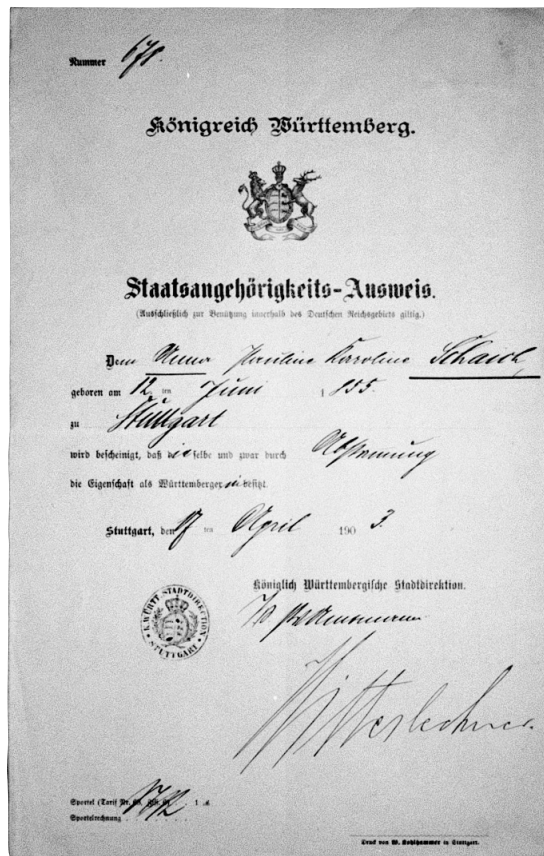 Nummer 678.
Königreich Württemberg.
Staatsangehörigkeits-Ausweis.
(Ausschließlich zur Benützung innerhalb des Deutschen Reichsgebiets giltig.)
Dem Anna Pauline Karoline Schaich,
geboren am 12 ten Juni 1855.
zu Stuttgart
wird bescheinigt, daß dieselbe und zwar durch Abstammung
die Eigenschaft als Württembergerin besitzt.
Stuttgart, den 17 ten April 1903.
Königlich Württembergische Stadtdirektion.
K. WÜRTT. STADTDIRECTION
STUTTGART
Amtmann
Sportel (Tarif Nr. 1 ℳ
Sportelrechnung
Druck von W. Kohlhammer in Stuttgart.